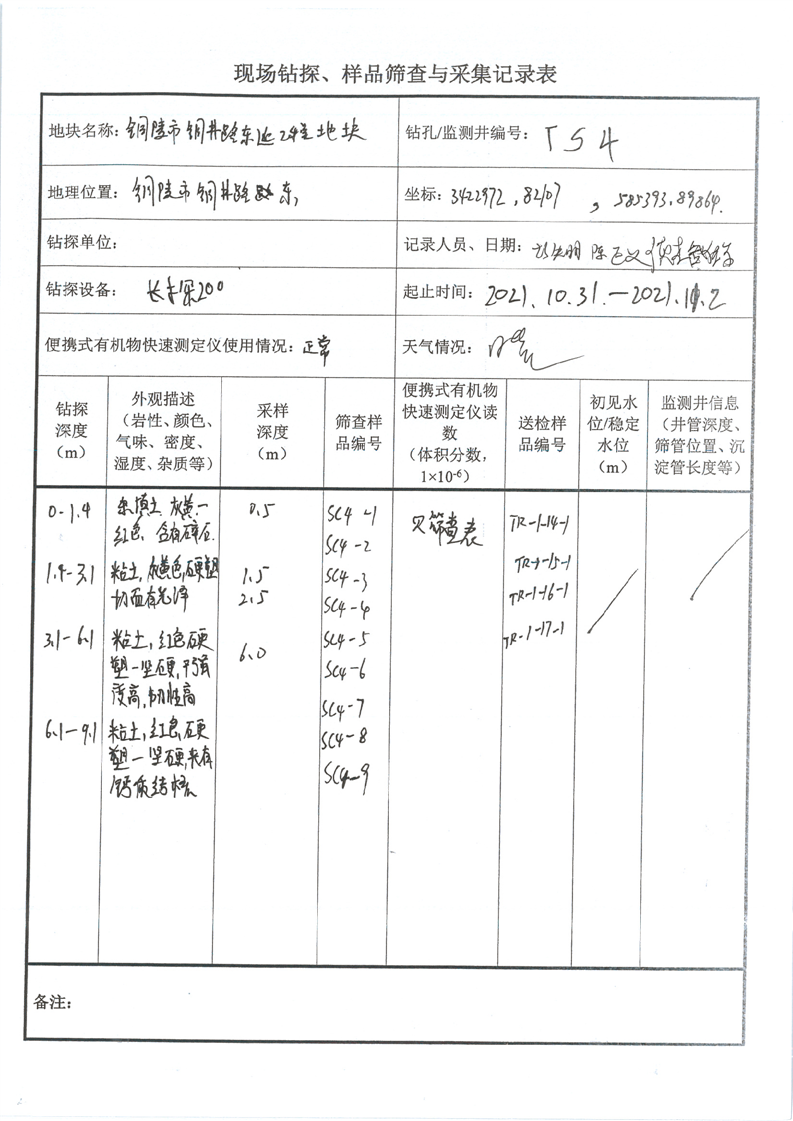 现场钻探、样品筛查与采集记录表
地块名称：铜陵市铜井路东延2#地块
钻孔/监测井编号：TS4
地理位置：铜陵市铜井路东
坐标：3422972.82107，585393.89864.
钻探单位：
记录人员、日期：
钻探设备：长探200
起止时间：2021.10.31.—2021.11.2
便携式有机物快速测定仪使用情况：正常
天气情况：
钻探
深度
（m）
外观描述
（岩性、颜色、
气味、密度、
湿度、杂质等）
采样
深度
（m）
筛查样
品编号
便携式有机物
快速测定仪读
数
（体积分数，
1×10-6）
送检样
品编号
初见水
位/稳定
水位
（m）
监测井信息
（井管深度、
筛管位置、沉
淀管长度等）
0-1.4 杂填土 灰黄— 0.5 SC4-1 见筛查表 TR-1-14-1
红色，含有碎石. SC4-2
1.4-3.1 粘土，灰黄色，硬塑 1.5 SC4-3 TR-1-15-1
切面有光泽 2.5 SC4-4 TR-1-16-1
3.1-6.1 粘土，红色，硬 6.0 SC4-5 TR-1-17-1
塑—坚硬，干强 SC4-6
度高，韧性高 SC4-7
6.1-9.1 粘土，红色，硬 SC4-8
塑—坚硬，夹有 SC4-9
钙质结核
备注：